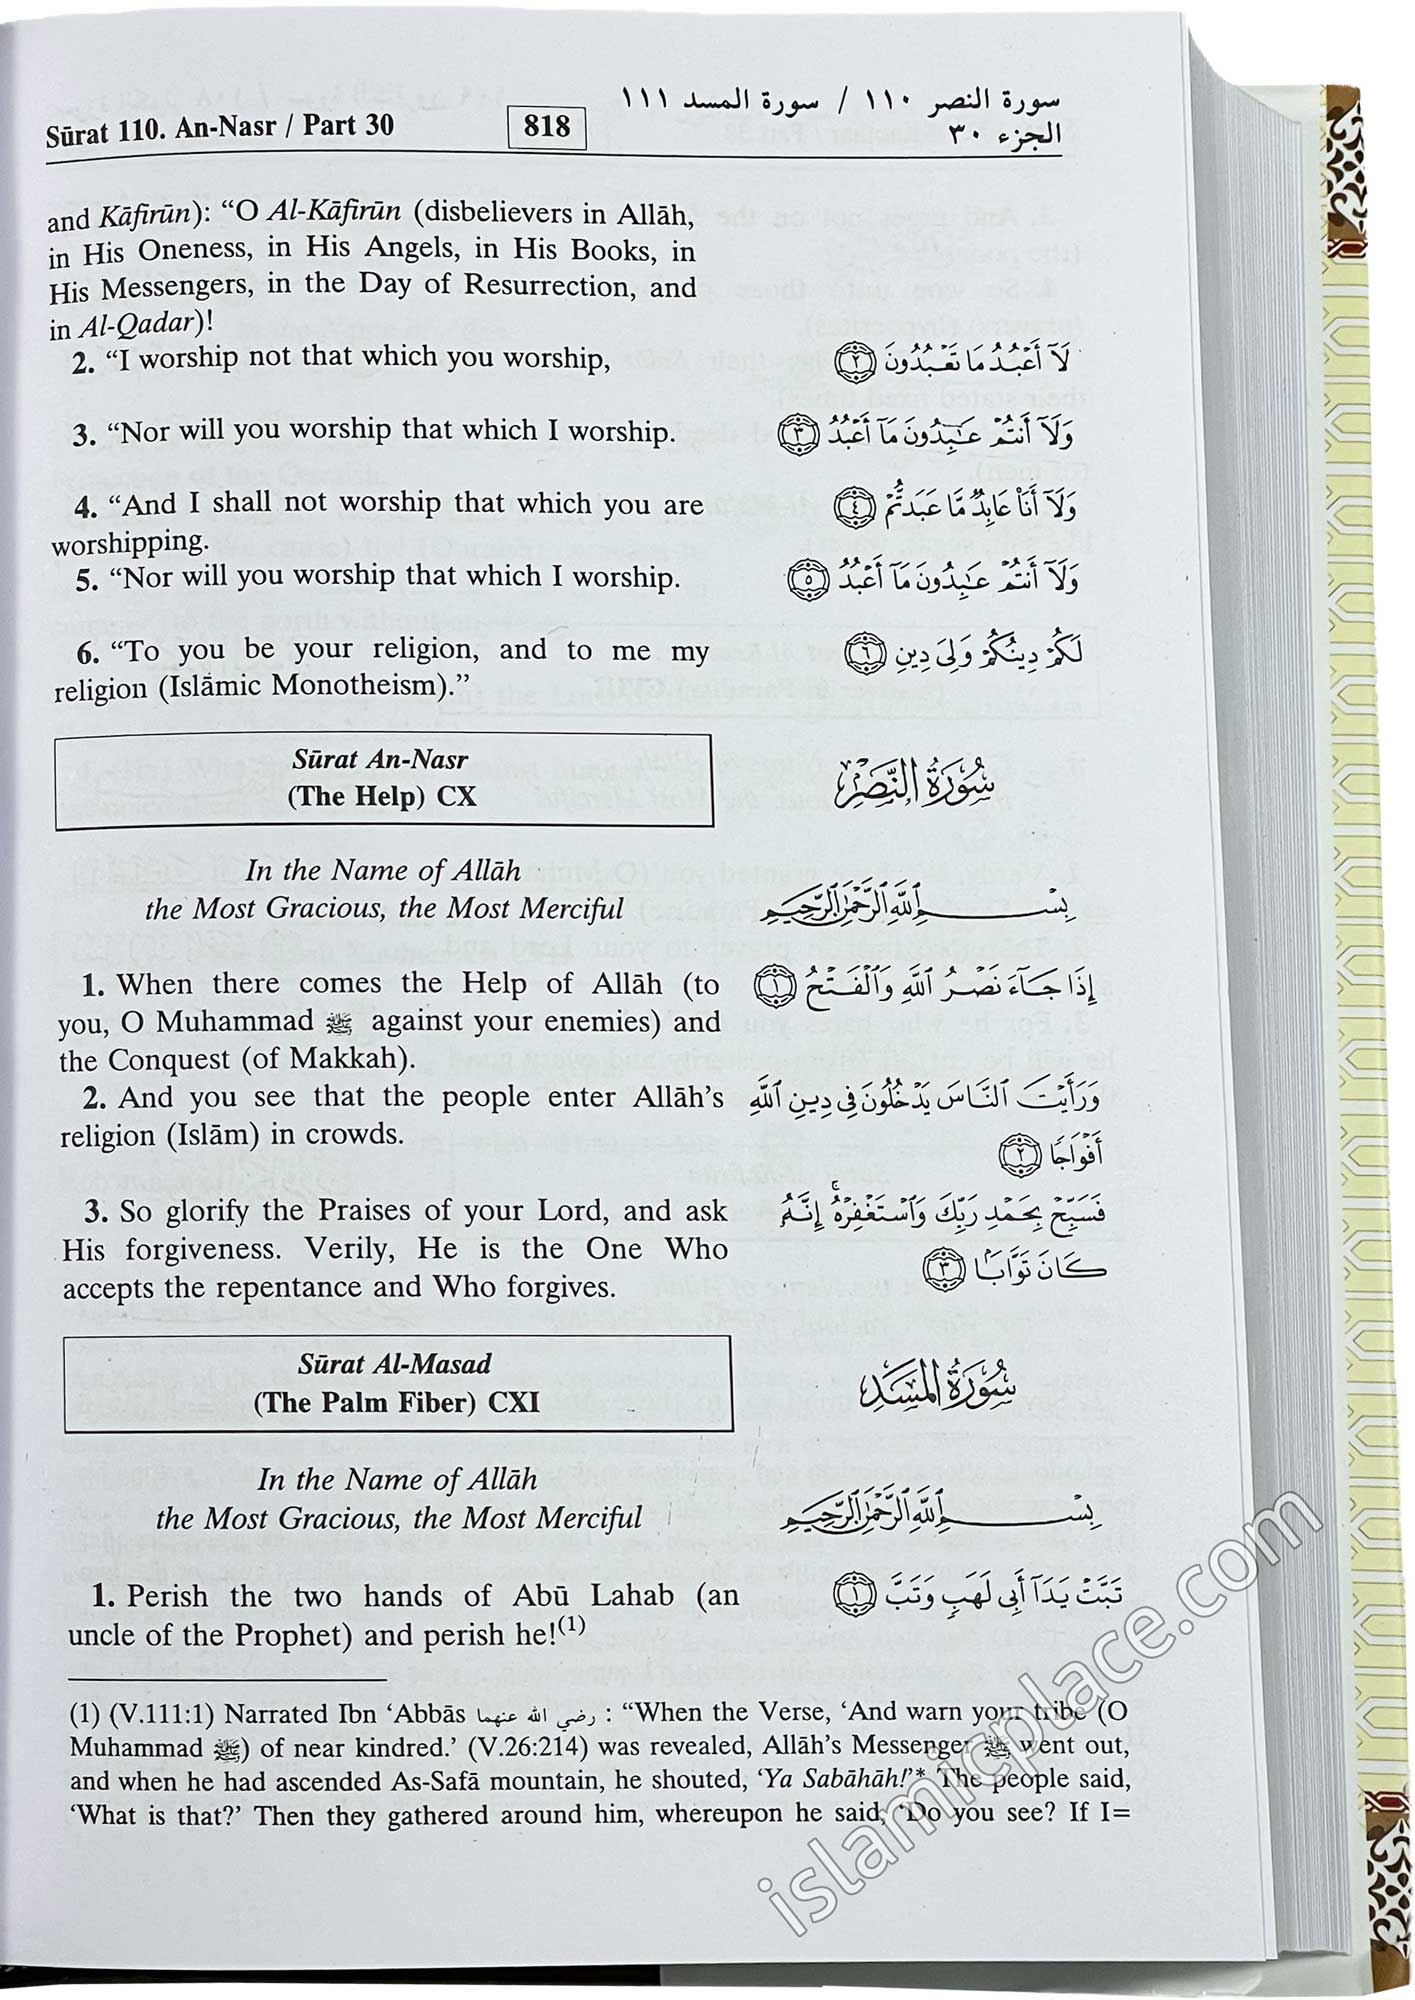 Sūrat 110. An-Nasr / Part 30
818
سورة النصر ١١٠ / سورة المسد ١١١
الجزء ٣٠
and Kāfirūn): “O Al-Kāfirūn (disbelievers in Allāh,
in His Oneness, in His Angels, in His Books, in
His Messengers, in the Day of Resurrection, and
in Al-Qadar)!
2. “I worship not that which you worship,
لَآ أَعْبُدُ مَا تَعْبُدُونَ ٢
3. “Nor will you worship that which I worship.
وَلَآ أَنتُمْ عَـٰبِدُونَ مَآ أَعْبُدُ ٣
4. “And I shall not worship that which you are
worshipping.
وَلَآ أَنَا۠ عَابِدٌ مَّا عَبَدتُّمْ ٤
5. “Nor will you worship that which I worship.
وَلَآ أَنتُمْ عَـٰبِدُونَ مَآ أَعْبُدُ ٥
6. “To you be your religion, and to me my
religion (Islāmic Monotheism).”
لَكُمْ دِينُكُمْ وَلِىَ دِينِ ٦
Sūrat An-Nasr
(The Help) CX
سُورَةُ النَّصْرِ
In the Name of Allāh
the Most Gracious, the Most Merciful
بِسْمِ ٱللَّهِ ٱلرَّحْمَـٰنِ ٱلرَّحِيمِ
1. When there comes the Help of Allāh (to
you, O Muhammad ﷺ against your enemies) and
the Conquest (of Makkah).
إِذَا جَآءَ نَصْرُ ٱللَّهِ وَٱلْفَتْحُ ١
2. And you see that the people enter Allāh’s
religion (Islām) in crowds.
وَرَأَيْتَ ٱلنَّاسَ يَدْخُلُونَ فِى دِينِ ٱللَّهِ
أَفْوَاجًا ٢
3. So glorify the Praises of your Lord, and ask
His forgiveness. Verily, He is the One Who
accepts the repentance and Who forgives.
فَسَبِّحْ بِحَمْدِ رَبِّكَ وَٱسْتَغْفِرْهُ ۚ إِنَّهُۥ
كَانَ تَوَّابًۢا ٣
Sūrat Al-Masad
(The Palm Fiber) CXI
سُورَةُ المَسَد
In the Name of Allāh
the Most Gracious, the Most Merciful
بِسْمِ ٱللَّهِ ٱلرَّحْمَـٰنِ ٱلرَّحِيمِ
1. Perish the two hands of Abū Lahab (an
uncle of the Prophet) and perish he!(1)
تَبَّتْ يَدَآ أَبِى لَهَبٍ وَتَبَّ ١
(1) (V.111:1) Narrated Ibn ‘Abbās رضي الله عنهما : “When the Verse, ‘And warn your tribe (O
Muhammad ﷺ) of near kindred.’ (V.26:214) was revealed, Allāh’s Messenger ﷺ went out,
and when he had ascended As-Safā mountain, he shouted, ‘Ya Sabāhāh!’* The people said,
‘What is that?’ Then they gathered around him, whereupon he said, ‘Do you see? If I=
islamicplace.com